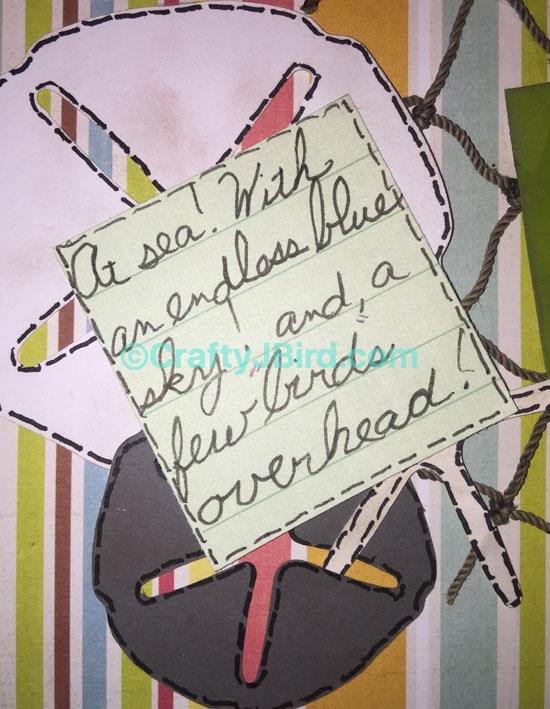 At sea! With
an endless blue
sky; and, a
few birds
overhead!
©CraftyJBird.com